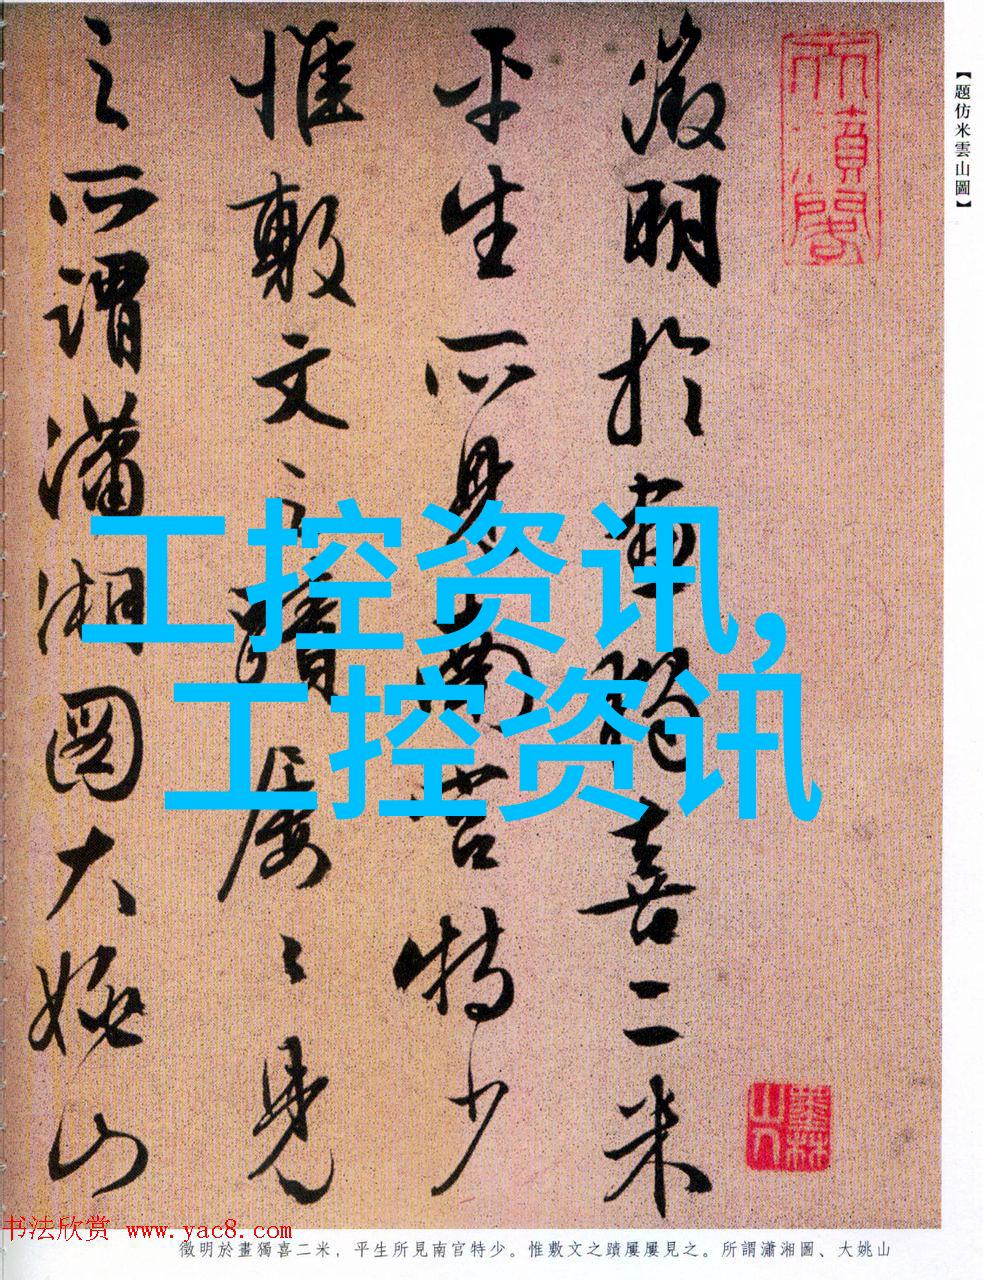 【題仿米雲山圖】
徵明於畫獨喜二米
平生所見南宮特少
惟敷文之蹟屢〻見
之所謂瀟湘圖大姚山
工控资讯,
工控资讯
墨林山人
书法欣赏 www.yac8.com
徵明於畫獨喜二米，平生所見南宮特少。惟敷文之蹟屢屢見之。所謂瀟湘圖、大姚山